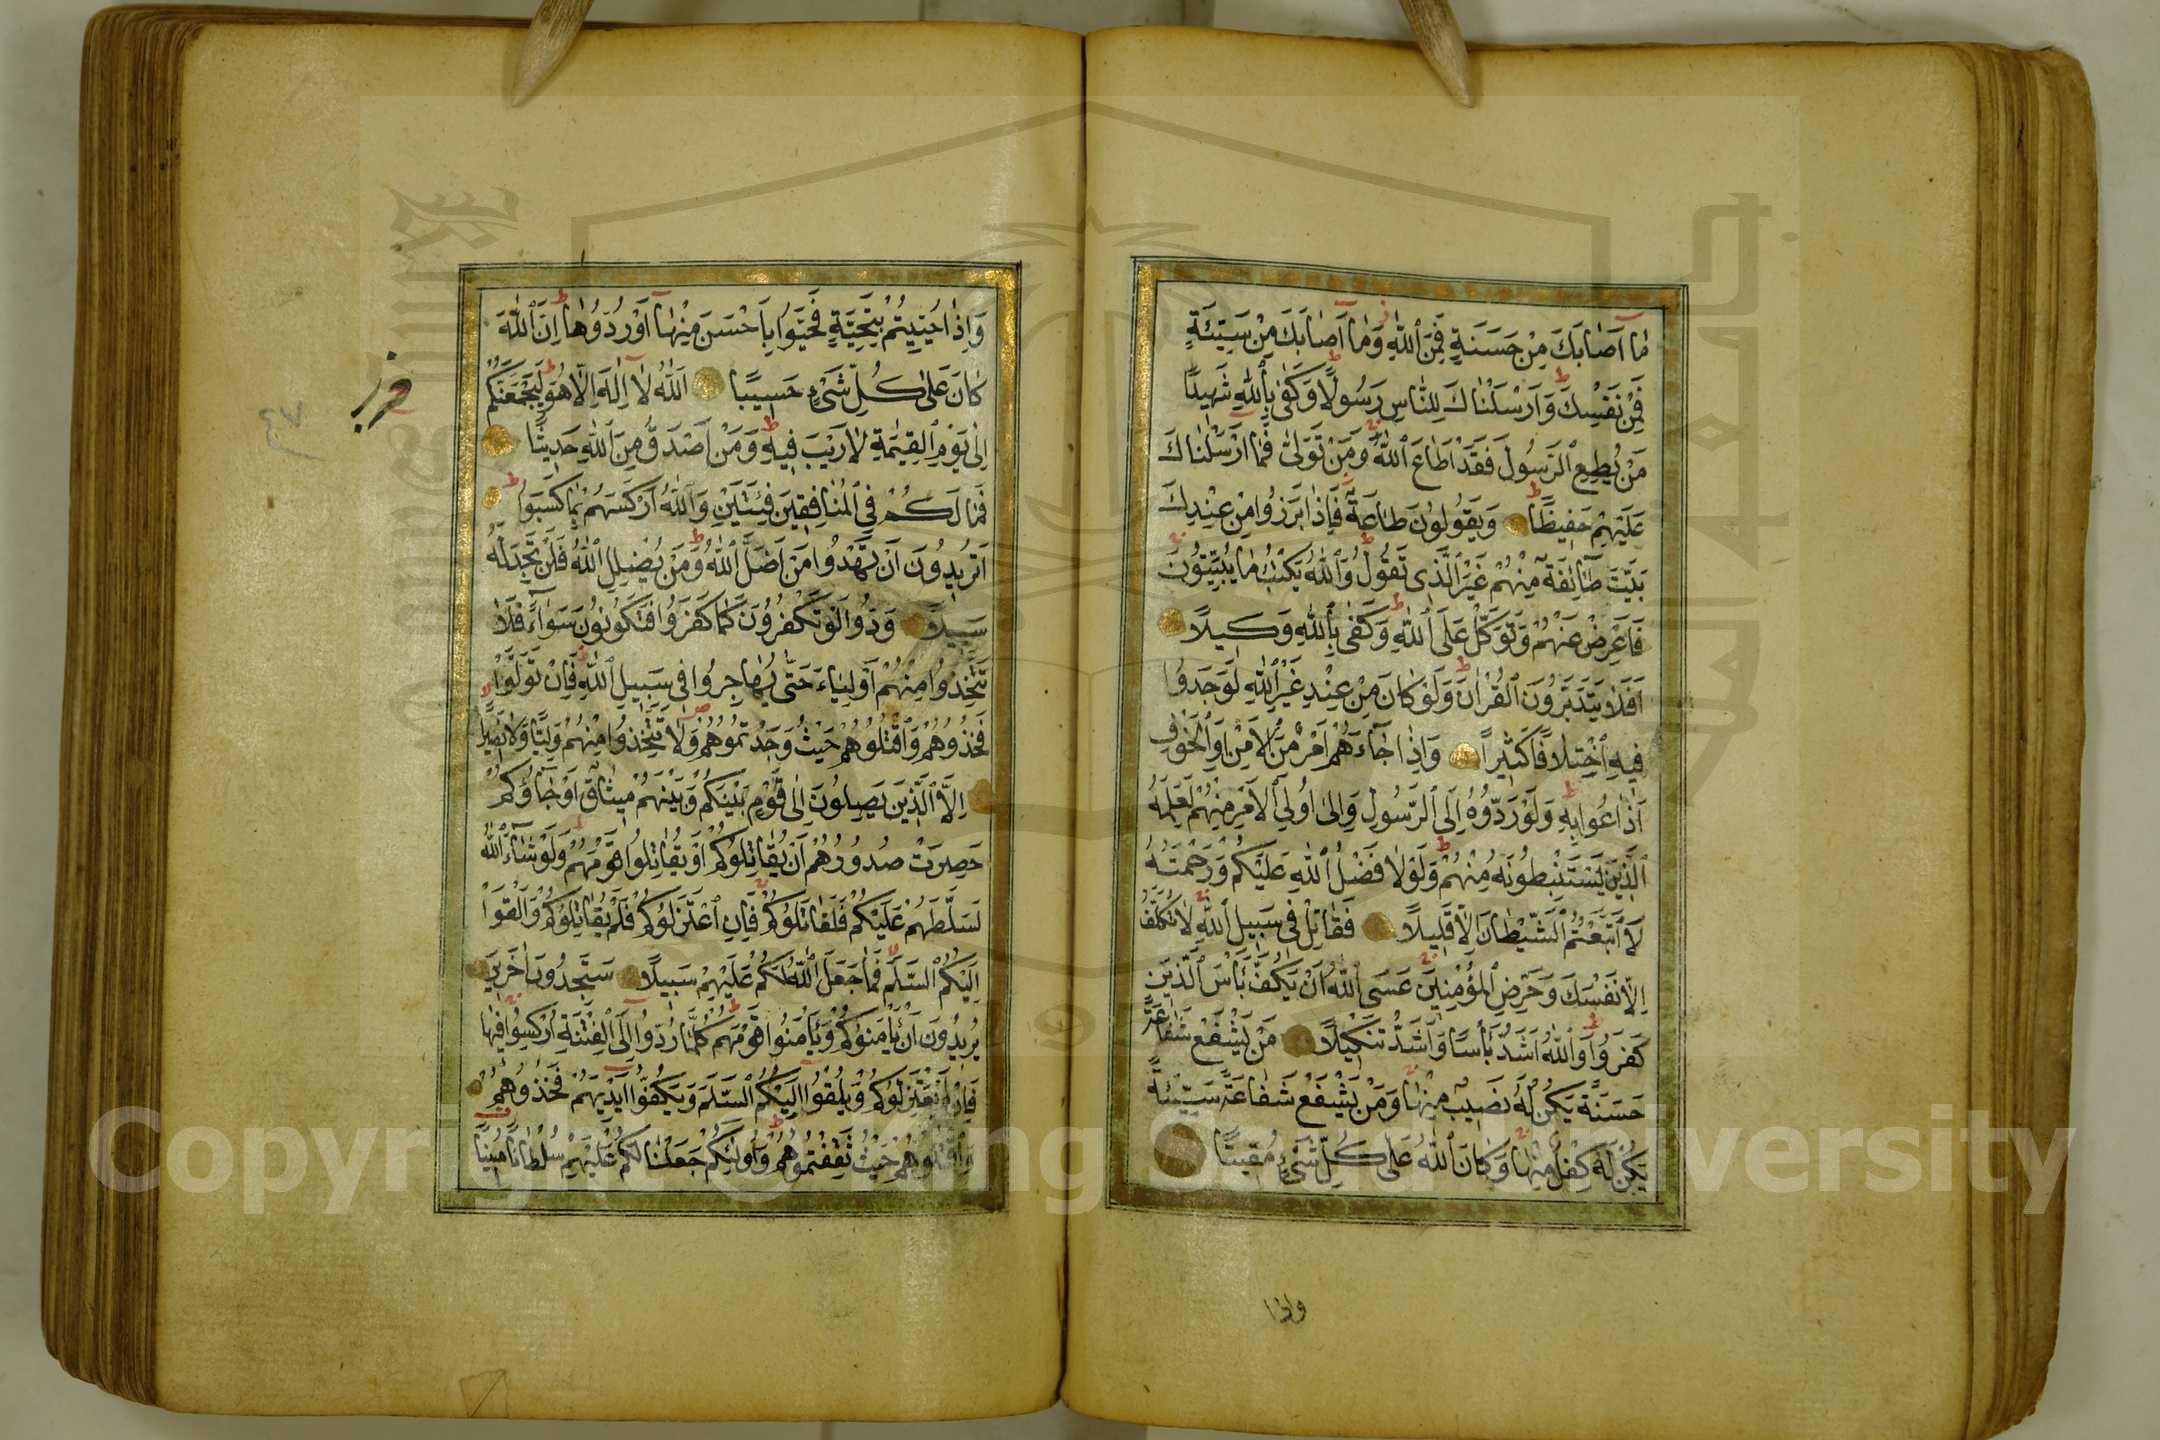 مَا اَصَابَكَ مِنْ حَسَنَةٍ فَمِنَ ٱللّٰهِ وَمَا اَصَابَكَ مِنْ سَيِّئَةٍ
فَمِنْ نَفْسِكَ وَاَرْسَلْنَاكَ لِلنَّاسِ رَسُولًا وَكَفٰى بِٱللّٰهِ شَهِيدًا
مَنْ يُطِعِ ٱلرَّسُولَ فَقَدْ اَطَاعَ ٱللّٰهَ وَمَنْ تَوَلّٰى فَمَا اَرْسَلْنَاكَ
عَلَيْهِمْ حَفِيظًا وَيَقُولُونَ طَاعَةٌ فَاِذَا بَرَزُوا مِنْ عِنْدِكَ
بَيَّتَ طَائِفَةٌ مِنْهُمْ غَيْرَ ٱلَّذِى تَقُولُ وَٱللّٰهُ يَكْتُبُ مَا يُبَيِّتُونَ
فَاَعْرِضْ عَنْهُمْ وَتَوَكَّلْ عَلَى ٱللّٰهِ وَكَفٰى بِٱللّٰهِ وَكِيلًا
اَفَلَا يَتَدَبَّرُونَ ٱلْقُرْاٰنَ وَلَوْ كَانَ مِنْ عِنْدِ غَيْرِ ٱللّٰهِ لَوَجَدُوا
فِيهِ ٱخْتِلَافًا كَثِيرًا وَاِذَا جَاءَهُمْ اَمْرٌ مِنَ ٱلْاَمْنِ اَوِ ٱلْخَوْفِ
اَذَاعُوا بِهِ وَلَوْ رَدُّوهُ اِلَى ٱلرَّسُولِ وَاِلٰى اُولِى ٱلْاَمْرِ مِنْهُمْ لَعَلِمَهُ
ٱلَّذِينَ يَسْتَنْبِطُونَهُ مِنْهُمْ وَلَوْلَا فَضْلُ ٱللّٰهِ عَلَيْكُمْ وَرَحْمَتُهُ
لَاتَّبَعْتُمُ ٱلشَّيْطَانَ اِلَّا قَلِيلًا فَقَاتِلْ فِى سَبِيلِ ٱللّٰهِ لَا تُكَلَّفُ
اِلَّا نَفْسَكَ وَحَرِّضِ ٱلْمُؤْمِنِينَ عَسَى ٱللّٰهُ اَنْ يَكُفَّ بَأْسَ ٱلَّذِينَ
كَفَرُوا وَٱللّٰهُ اَشَدُّ بَأْسًا وَاَشَدُّ تَنْكِيلًا مَنْ يَشْفَعْ شَفَاعَةً
حَسَنَةً يَكُنْ لَهُ نَصِيبٌ مِنْهَا وَمَنْ يَشْفَعْ شَفَاعَةً سَيِّئَةً
يَكُنْ لَهُ كِفْلٌ مِنْهَا وَكَانَ ٱللّٰهُ عَلٰى كُلِّ شَىْءٍ مُقِيتًا
واذا
وَاِذَا حُيِّيتُمْ بِتَحِيَّةٍ فَحَيُّوا بِاَحْسَنَ مِنْهَا اَوْ رُدُّوهَا اِنَّ ٱللّٰهَ
كَانَ عَلٰى كُلِّ شَىْءٍ حَسِيبًا اَللّٰهُ لَا اِلٰهَ اِلَّا هُوَ لَيَجْمَعَنَّكُمْ
اِلٰى يَوْمِ ٱلْقِيٰمَةِ لَا رَيْبَ فِيهِ وَمَنْ اَصْدَقُ مِنَ ٱللّٰهِ حَدِيثًا
فَمَا لَكُمْ فِى ٱلْمُنَافِقِينَ فِئَتَيْنِ وَٱللّٰهُ اَرْكَسَهُمْ بِمَا كَسَبُوا
اَتُرِيدُونَ اَنْ تَهْدُوا مَنْ اَضَلَّ ٱللّٰهُ وَمَنْ يُضْلِلِ ٱللّٰهُ فَلَنْ تَجِدَ لَهُ
سَبِيلًا وَدُّوا لَوْ تَكْفُرُونَ كَمَا كَفَرُوا فَتَكُونُونَ سَوَاءً فَلَا
تَتَّخِذُوا مِنْهُمْ اَوْلِيَاءَ حَتّٰى يُهَاجِرُوا فِى سَبِيلِ ٱللّٰهِ فَاِنْ تَوَلَّوْا
فَخُذُوهُمْ وَٱقْتُلُوهُمْ حَيْثُ وَجَدْتُمُوهُمْ وَلَا تَتَّخِذُوا مِنْهُمْ وَلِيًّا وَلَا نَصِيرًا
اِلَّا ٱلَّذِينَ يَصِلُونَ اِلٰى قَوْمٍ بَيْنَكُمْ وَبَيْنَهُمْ مِيثَاقٌ اَوْ جَاؤُكُمْ
حَصِرَتْ صُدُورُهُمْ اَنْ يُقَاتِلُوكُمْ اَوْ يُقَاتِلُوا قَوْمَهُمْ وَلَوْ شَاءَ ٱللّٰهُ
لَسَلَّطَهُمْ عَلَيْكُمْ فَلَقَاتَلُوكُمْ فَاِنِ ٱعْتَزَلُوكُمْ فَلَمْ يُقَاتِلُوكُمْ وَاَلْقَوْا
اِلَيْكُمُ ٱلسَّلَمَ فَمَا جَعَلَ ٱللّٰهُ لَكُمْ عَلَيْهِمْ سَبِيلًا سَتَجِدُونَ اٰخَرِينَ
يُرِيدُونَ اَنْ يَأْمَنُوكُمْ وَيَأْمَنُوا قَوْمَهُمْ كُلَّمَا رُدُّوا اِلَى ٱلْفِتْنَةِ اُرْكِسُوا فِيهَا
فَاِنْ لَمْ يَعْتَزِلُوكُمْ وَيُلْقُوا اِلَيْكُمُ ٱلسَّلَمَ وَيَكُفُّوا اَيْدِيَهُمْ فَخُذُوهُمْ
وَٱقْتُلُوهُمْ حَيْثُ ثَقِفْتُمُوهُمْ وَاُولٰئِكُمْ جَعَلْنَا لَكُمْ عَلَيْهِمْ سُلْطَانًا مُبِينًا
Copyright © King Saud University